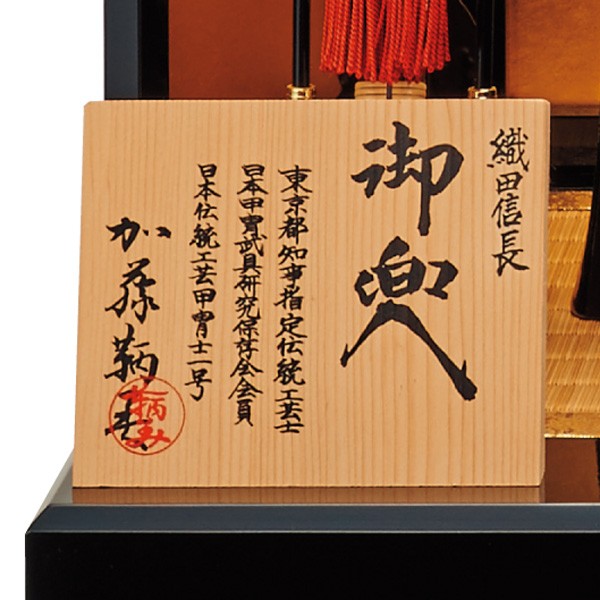 織田信長
御兜
東京都知事指定伝統工芸士
日本甲冑武具研究保存会会員
日本伝統工芸甲冑士一号
加藤鞆美